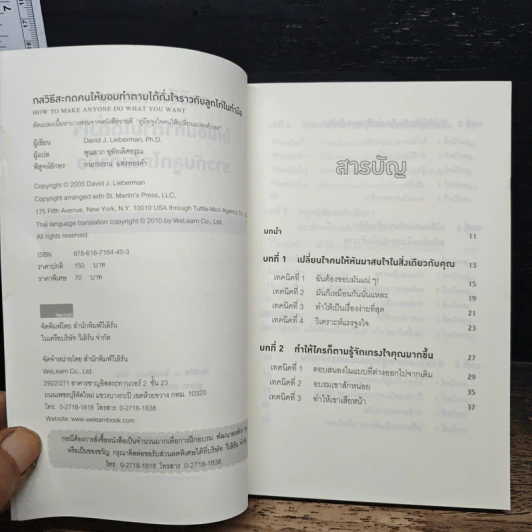 กลวิธีสะกดคนให้ยอมทำตามได้ดั่งใจราวกับลูกไก่ในกำมือ
HOW TO MAKE ANYONE DO WHAT YOU WANT
ผู้เขียน David J. Lieberman, Ph.D.
ผู้แปล
พิสูจน์อักษร
Copyright © 2005 David J. Lieberman
Copyright arranged with St. Martin's Press, LLC,
175 Fifth Avenue, New York, N.Y. 10010 USA through Tuttle-Mori Agency
Thai language translation copyright © 2010 by WeLearn Co., Ltd.
All rights reserved.
ISBN 978-616-7164-40-3
ราคาปกติ 150 บาท
ราคาพิเศษ 70 บาท
จัดพิมพ์โดย สำนักพิมพ์วีเลิร์น
ในเครือบริษัท วีเลิร์น จำกัด
จัดจำหน่ายโดย สำนักพิมพ์วีเลิร์น
WeLearn Co., Ltd.
2922/271 อาคารชาญอิสสระทาวเวอร์ 2 ชั้น 23
ถนนเพชรบุรีตัดใหม่ แขวงบางกะปิ เขตห้วยขวาง กทม. 10320
โทร. 0-2718-1818 โทรสาร 0-2718-1838
Website: www.welearnbook.com
กรณีต้องการสั่งซื้อหนังสือเป็นจำนวนมากเพื่อการฝึกอบรม พัฒนาองค์กร
หรือเป็นของขวัญ กรุณาติดต่อขอรับส่วนลดพิเศษได้ที่บริษัท วีเลิร์น จำกัด
โทร. 0-2718-1818 โทรสาร 0-2718-1838
สารบัญ
บทนำ 11
บทที่ 1 เปลี่ยนใจคนให้หันมาสนใจในสิ่งเดียวกับคุณ 13
เทคนิคที่ 1 ฉันต้องชอบมันแน่ ๆ! 15
เทคนิคที่ 2 มันก็เหมือนกันนั่นแหละ 19
เทคนิคที่ 3 ทำให้เป็นเรื่องง่ายที่สุด 21
เทคนิคที่ 4 วิเคราะห์แรงจูงใจ 23
บทที่ 2 ทำให้ใครก็ตามรู้จักเกรงใจคุณมากขึ้น 27
เทคนิคที่ 1 ตอบสนองในแบบที่ต่างออกไปจากเดิม 29
เทคนิคที่ 2 อบรมเขาสักหน่อย 35
เทคนิคที่ 3 ทำให้เขาเสียหน้า 37